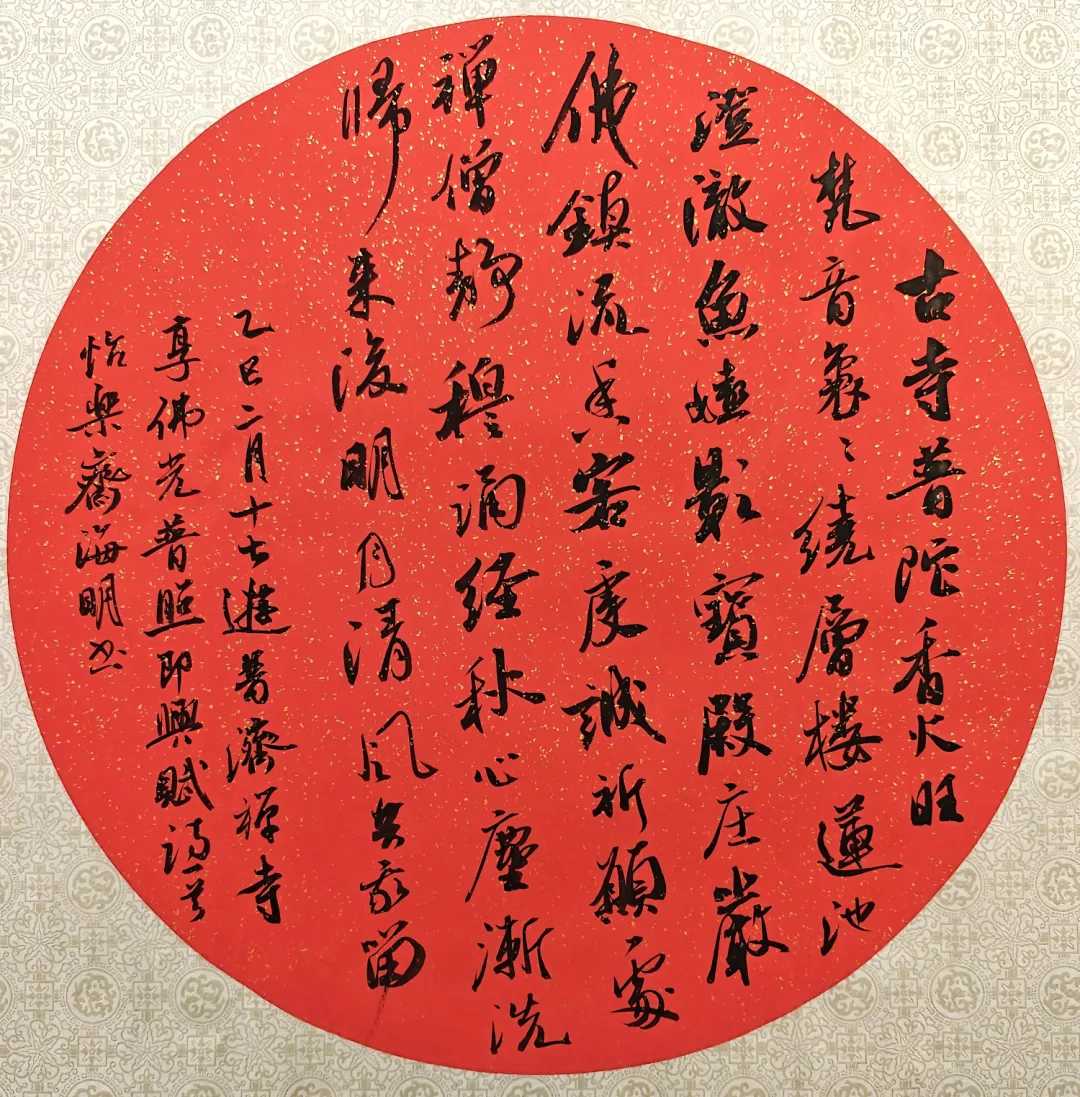 古寺普陀香火旺
梵音裊々繞層楼蓮池
澄澈魚嬉影寶殿庄嚴
佛鎮流香客虔誠祈願處
禅僧靜穆誦経秋心塵漸洗
歸来後明月清风共我留
乙巳二月十七遊普濟禅寺
享佛光普照即興賦詩一首
怡樂齋海明书